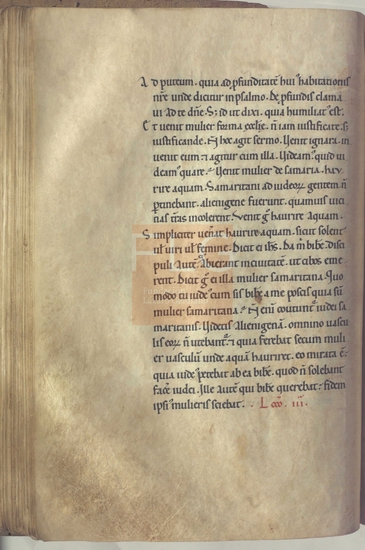 A d puteum. quia ad ꝓfunditatē hui' habitationis
nr̄e unde dicitur in psalmo. De ꝓfundis clama
ui ad te dn̄e. S; id ut dixi. quia humiliat' est.
E t venit mulier forma eccl̄ie. n̄ iam iustificate. s;
iustificande. Nā hoc agit sermo. Venit ignara. in
venit eum et agitur cum illa. Videam' quid vi
deam' quare. Venit mulier de samaria hau
rire aquam. Samaritani ad iudeoꝝ gentem n̄
ꝑtinebant. alienigene fuerunt. quamuis vici
nas t̄ras incolerent. Venit g̊ haurire aquam.
S impliciter ven̄at haurire aquam. sicut solent
ul' uiri ul' femine. Dicit ei ihs. Da m̄ bibe. Disci
puli aut̄ abierant in ciuitatē. ut cibos eme
rent. Dicit g̊ ei illa mulier samaritana. Quo
modo tu iude' cum sis bibe a me poscis quia sū
mulier samaritana. Nō eni coutunt' iudei sa
maritanis. Videtis alienigenā. omnino vascu
lis eoꝝ n̄ utebant'. et quia ferebat secum muli
er vasculū unde aquā hauriret. eo mirata ē.
quia iude' petebat ab ea bibe. quod n̄ solebant
facē iudei. Ille autē qui bibe querebat. fidem
ipsi' mulieris sciebat.